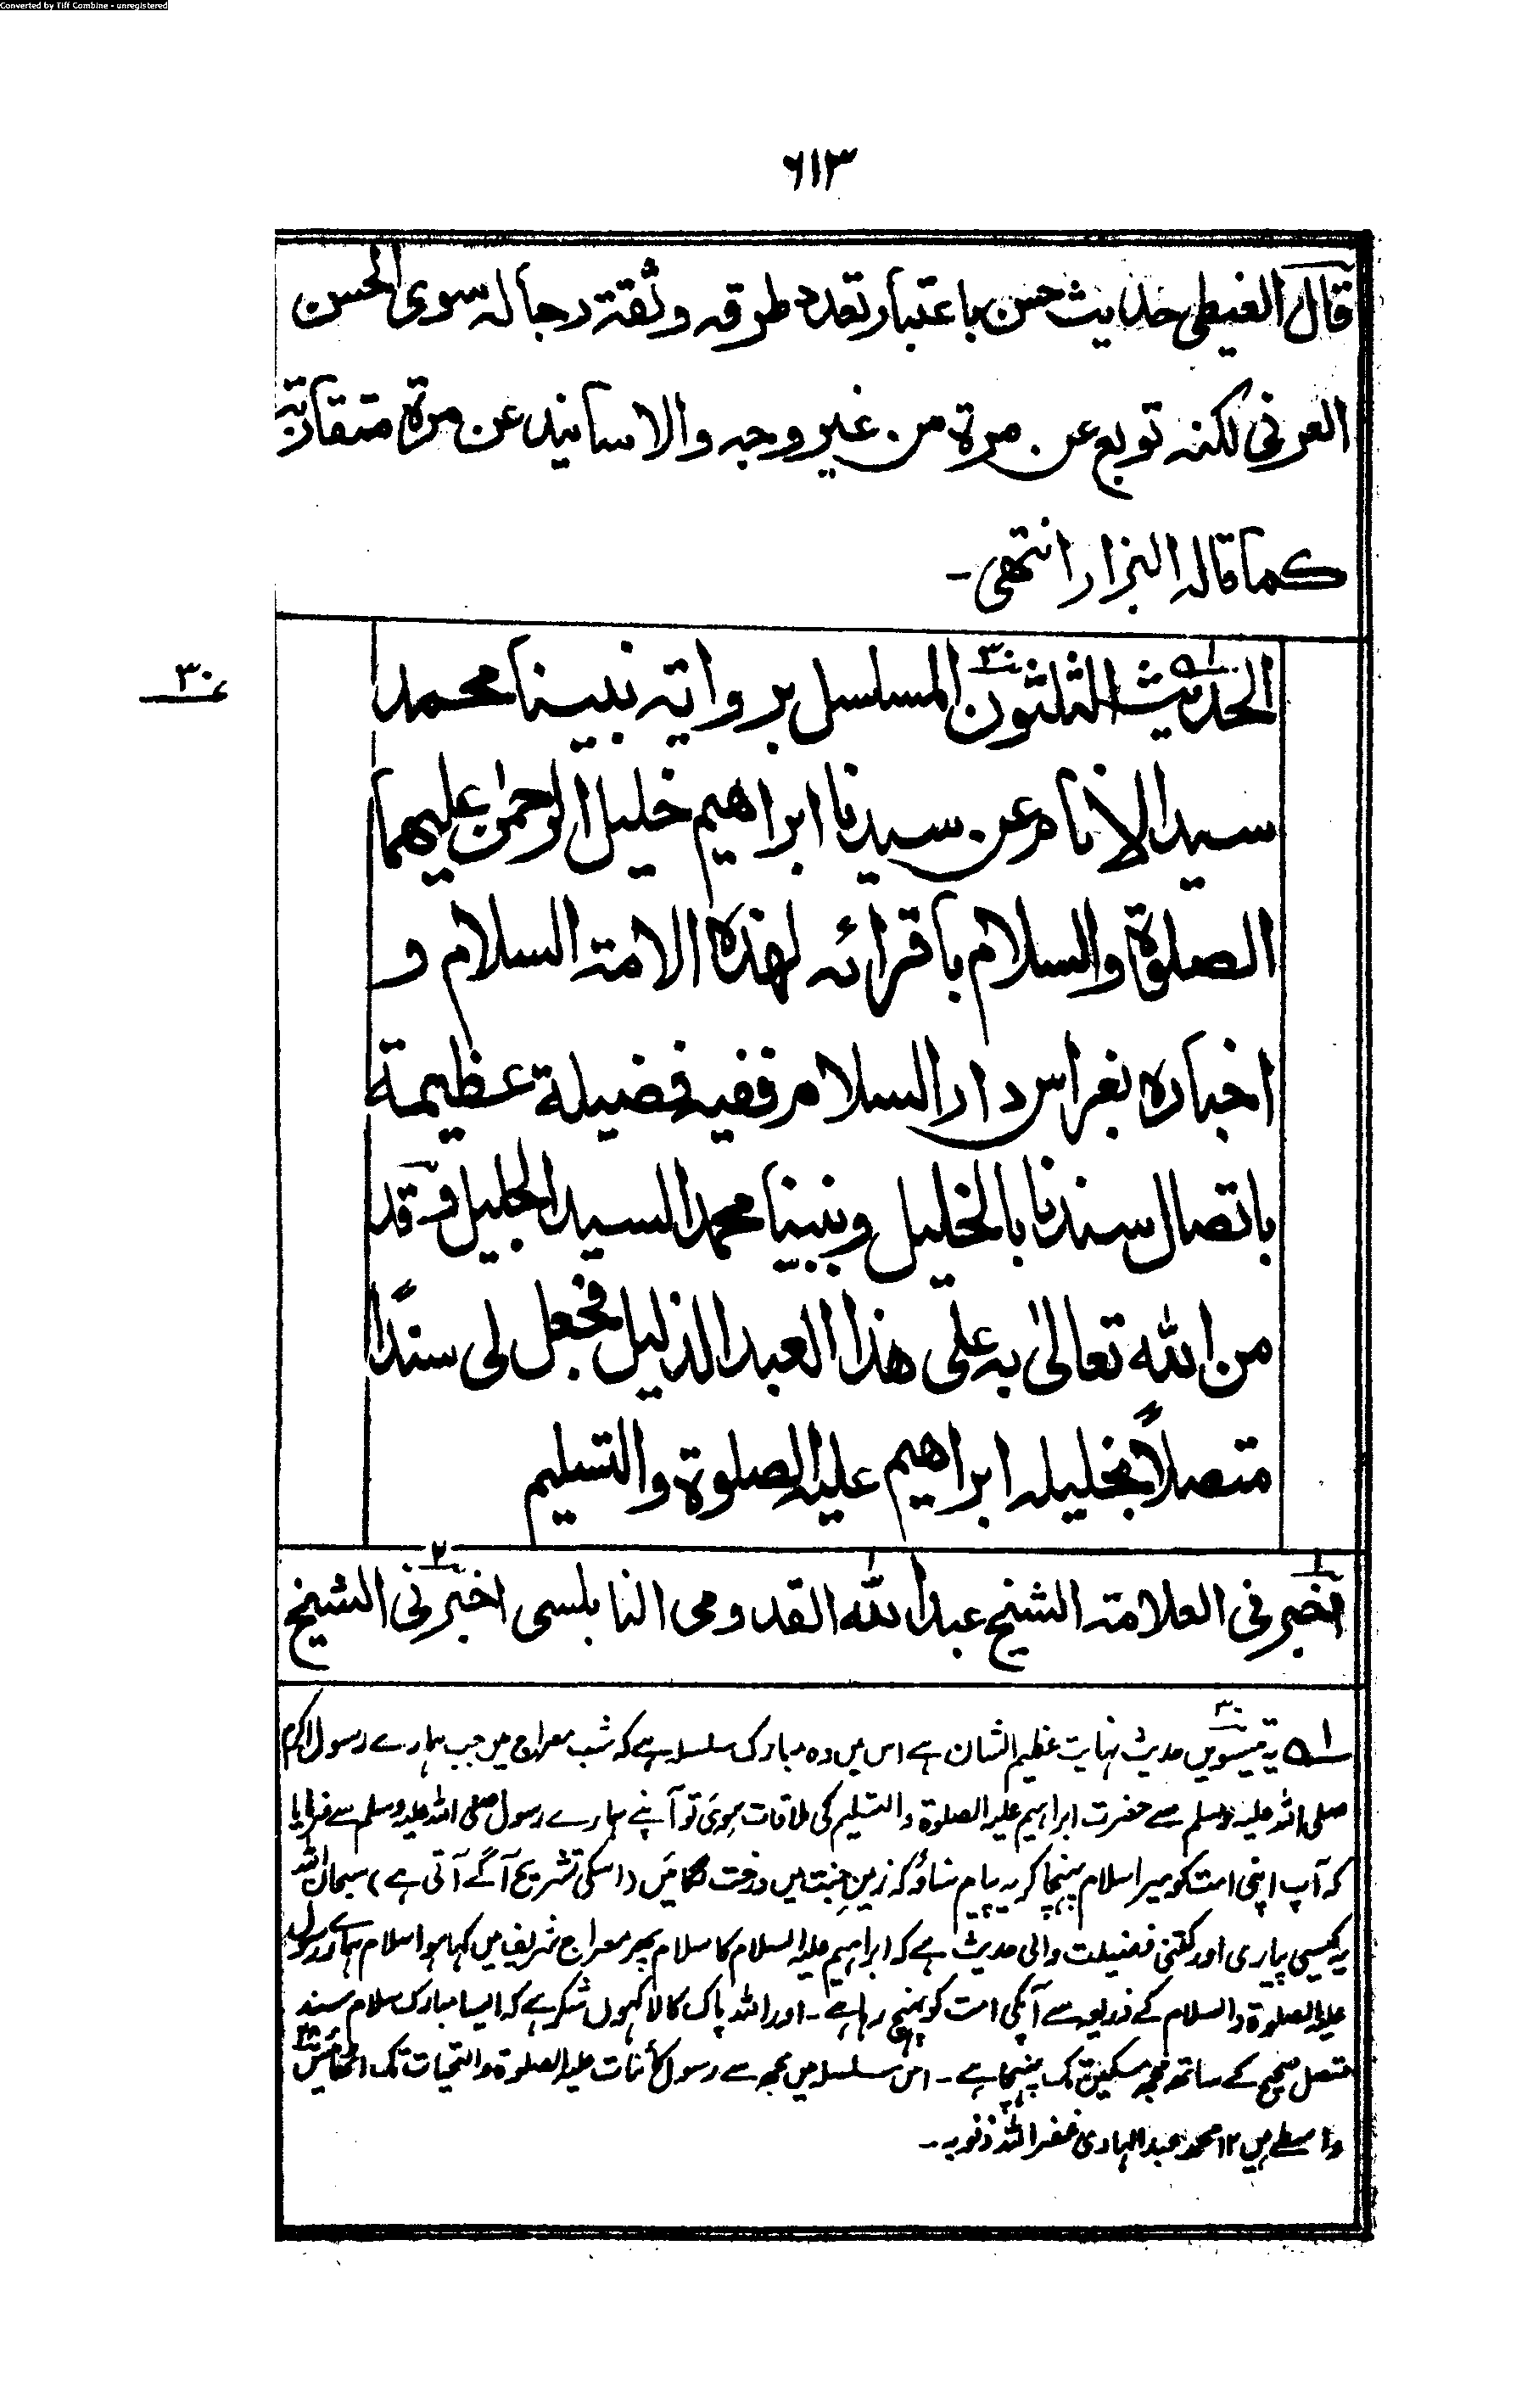 Converted by Tiff Combine - unregistered
٦١٣
قال الغيطى حديث حسن باعتبار تعدد طرقه وثقة رجاله سوى الحسن
العرنى لكنه توبع عن مرة من غير وجه والاسانيد عن مرة متقاربة
كما قاله البزار انتهى -
٣٠
الحديث الثلثون المسلسل برواية نبينا محمد
سيد الانام عن سيدنا ابراهيم خليل الرحمن عليهما
الصلوة والسلام باقرائه لهذه الامة السلام و
اخباره بغراس دار السلام ففيه فضيلة عظيمة
باتصال سندنا بالخليل ونبينا محمد السيد الجليل وقد
من الله تعالىٰ به على هذا العبد الذليل فجعل لى سندًا
متصلاً بخليله ابراهيم عليه الصلوة والتسليم
اخبرنى العلامة الشيخ عبد الله القدومى النابلسى اخبرنى الشيخ
لہ یہ تیسویں حدیث نہایت عظیم الشان ہے اس میں وہ مبارک سلسلہ ہے کہ شب معراج میں جب ہمارے رسول اکرم
صلی اللہ علیہ وسلم سے حضرت ابراہیم علیہ الصلوۃ والتسلیم کی ملاقات ہوئی تو آپنے ہمارے رسول صلی اللہ علیہ وسلم سے فرمایا
کہ آپ اپنی امت کو میرا سلام پہنچا کر یہ پیام سناؤ کہ زمین جنت میں درخت لگائیں (اسکی تشریح آگے آتی ہے) سبحان اللہ
یہ کیسی پیاری اور کتنی فضیلت والی حدیث ہے کہ ابراہیم علیہ السلام کا سلام پھر معراج شریف میں کہا ہوا سلام ہمارے رسول
علیہ الصلوۃ والسلام کے ذریعہ سے آپکی امت کو پہنچ رہا ہے - اور اللہ پاک کا لاکھوں شکر ہے کہ ایسا مبارک سلام بسند
متصل صحیح کے ساتھ مجھ مسکین تک پہنچا ہے - اس سلسلہ میں مجھ سے رسول کائنات علیہ الصلوۃ والتحیات تک اٹھائیس ٢٨
واسطے ہیں ١٢ محمد عبد الہادی غفر اللہ ذنوبہ -